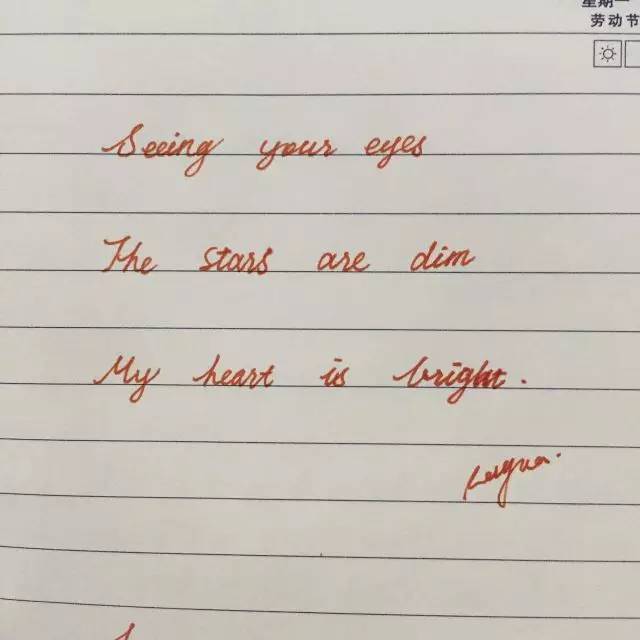 星期一
劳动节
Seeing your eyes
The stars are dim
My heart is bright.